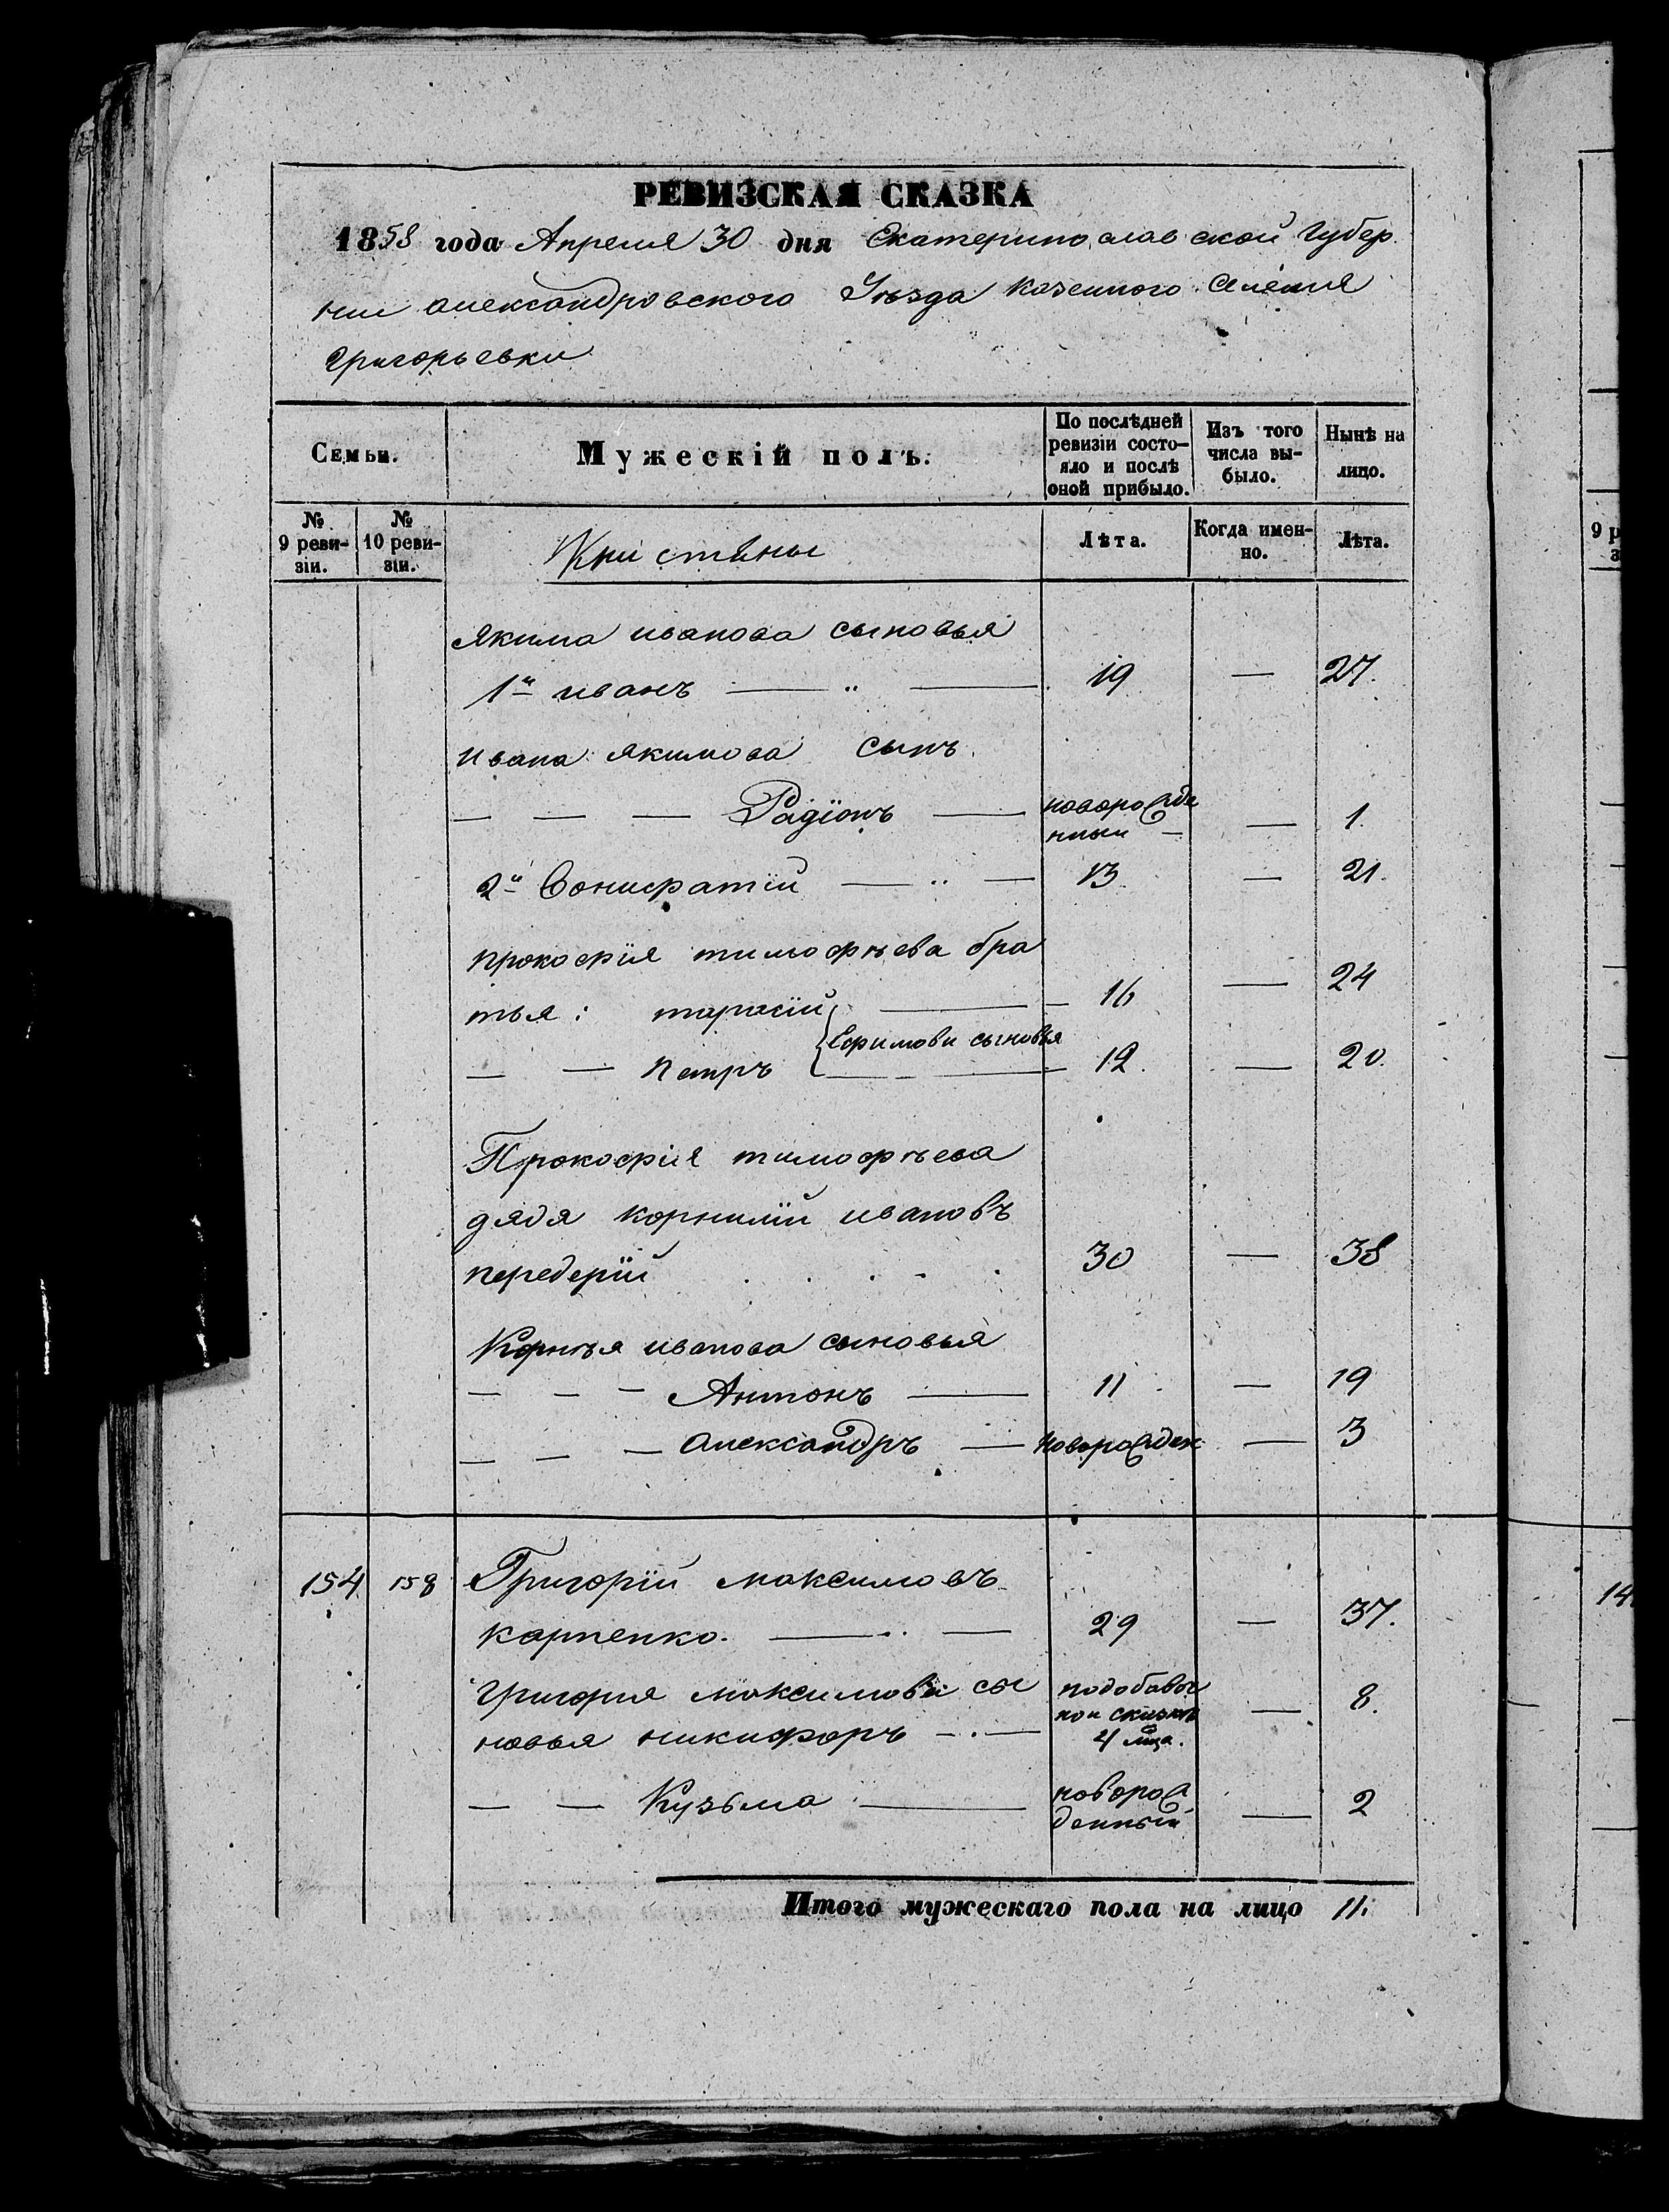 РЕВИЗСКАЯ СКАЗКА
1858 года Апреля 30 дня Екатеринославской Губер
нии александровского Уѣзда казенного селения
Григорьевки
Семьи.
Мужескій полъ.
По послѣдней ревизіи состо-яло и послѣ оной прибыло.
Изъ того числа вы-было.
Нынѣ на лицо.
№ 9 реви-зіи.
№ 10 реви-зіи.
Лѣта.
Когда имен-но.
Лѣта.
якима иванова сыновья
1й иванъ — " — 19 — 27.
ивана якимова сынъ
— — — Радіонъ — новорожде нный — — 1.
2й Вонифатій — " — 13 — 21.
прокофія тимофѣева бра
тья: тарасій — 16 — 24
Ефимови сыновья
— — петръ — 12. — 20.
Прокофія тимофѣева
дядя корнилій ивановъ
передерій . . . . . 30 — 38
Корнѣя иванова сыновья
— — — Антонъ — 11 — 19
— — — александръ — новорожден — 3
154 158 Григорій максимовъ
карпенко. — 29 — 37.
Григория максимова сы подобавоч
новья никифоръ — ной сказкѣ 4 лица. — 8.
— — Кузьма — новорож денный — 2
Итого мужескаго пола на лицо 11.
9 р
з
14